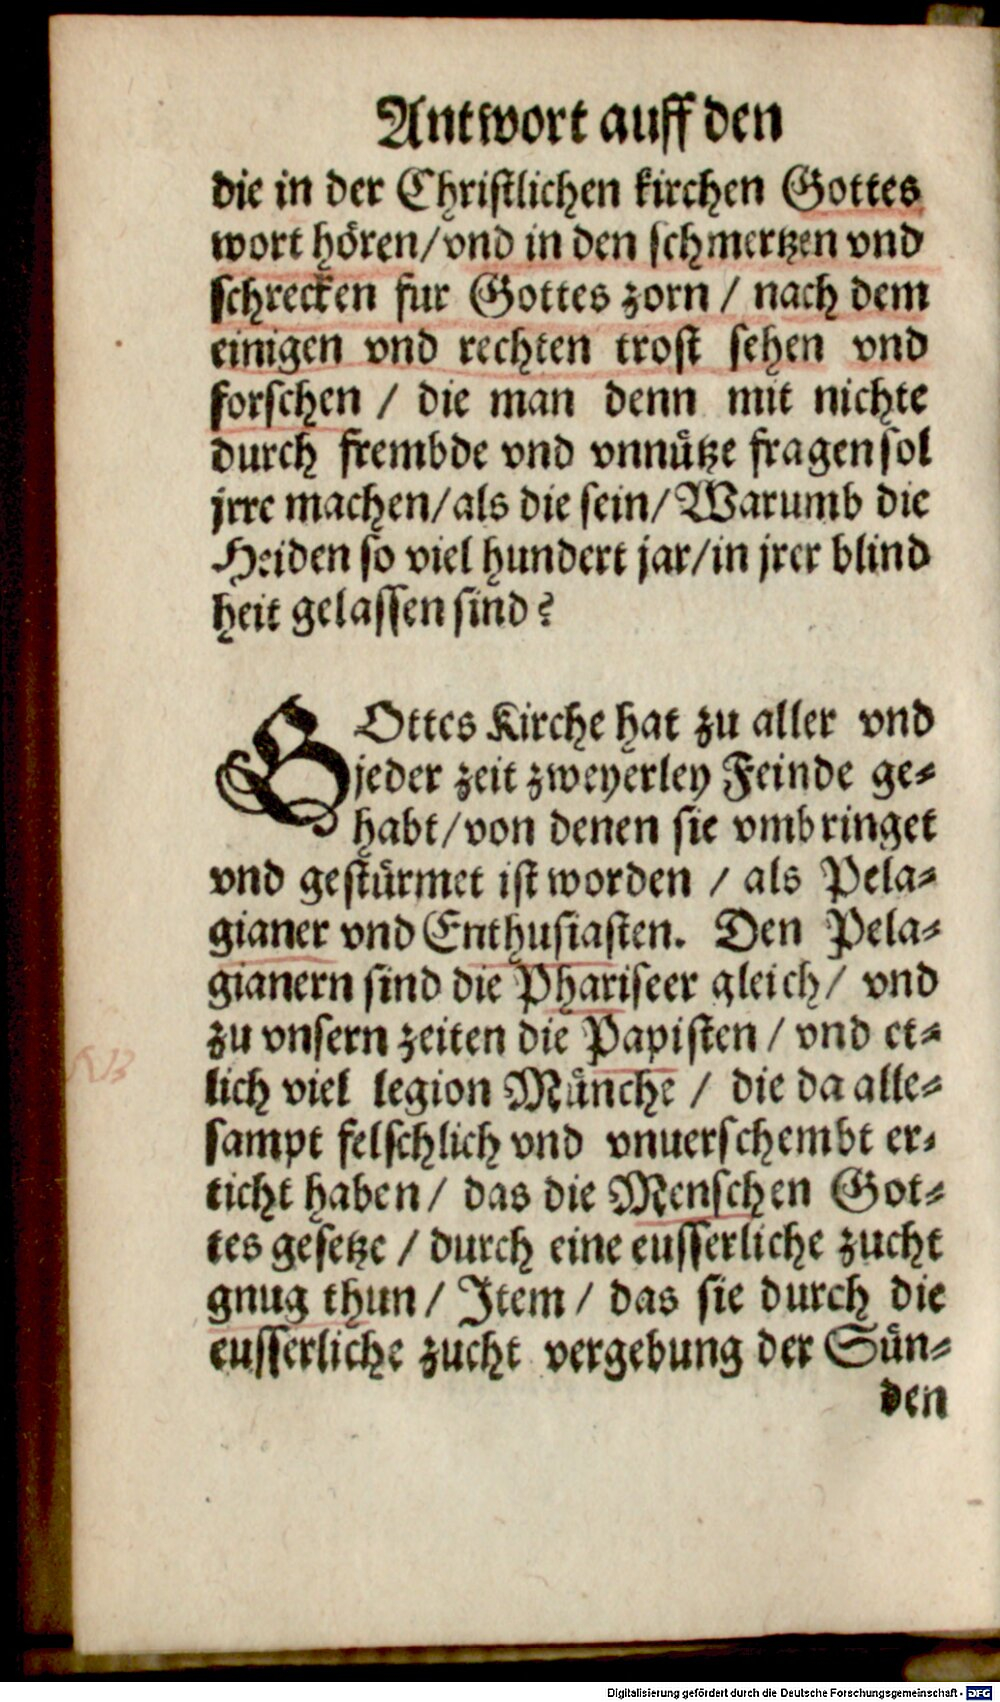 Antwort auff den
die in der Christlichen kirchen Gottes
wort hören/vnd in den schmertzen vnd
schrecken fur Gottes zorn / nach dem
einigen vnd rechten trost sehen vnd
forschen / die man denn mit nichte
durch frembde vnd vnnütze fragen sol
jrre machen/als die sein/Warumb die
Heiden so viel hundert jar/in jrer blind
heit gelassen sind?
GOttes Kirche hat zu aller vnd
jeder zeit zweyerley Feinde ge-
habt/von denen sie vmbringet
vnd gestürmet ist worden / als Pela-
gianer vnd Enthusiasten. Den Pela-
gianern sind die Phariseer gleich/ vnd
zu vnsern zeiten die Papisten / vnd et-
NB
lich viel legion Münche / die da alle-
sampt felschlich vnd vnuerschembt er-
ticht haben/ das die Menschen Got-
tes gesetze / durch eine eusserliche zucht
gnug thun/ Item/ das sie durch die
eusserliche zucht vergebung der Sün-
den
Digitalisierung gefördert durch die Deutsche Forschungsgemeinschaft - DFG